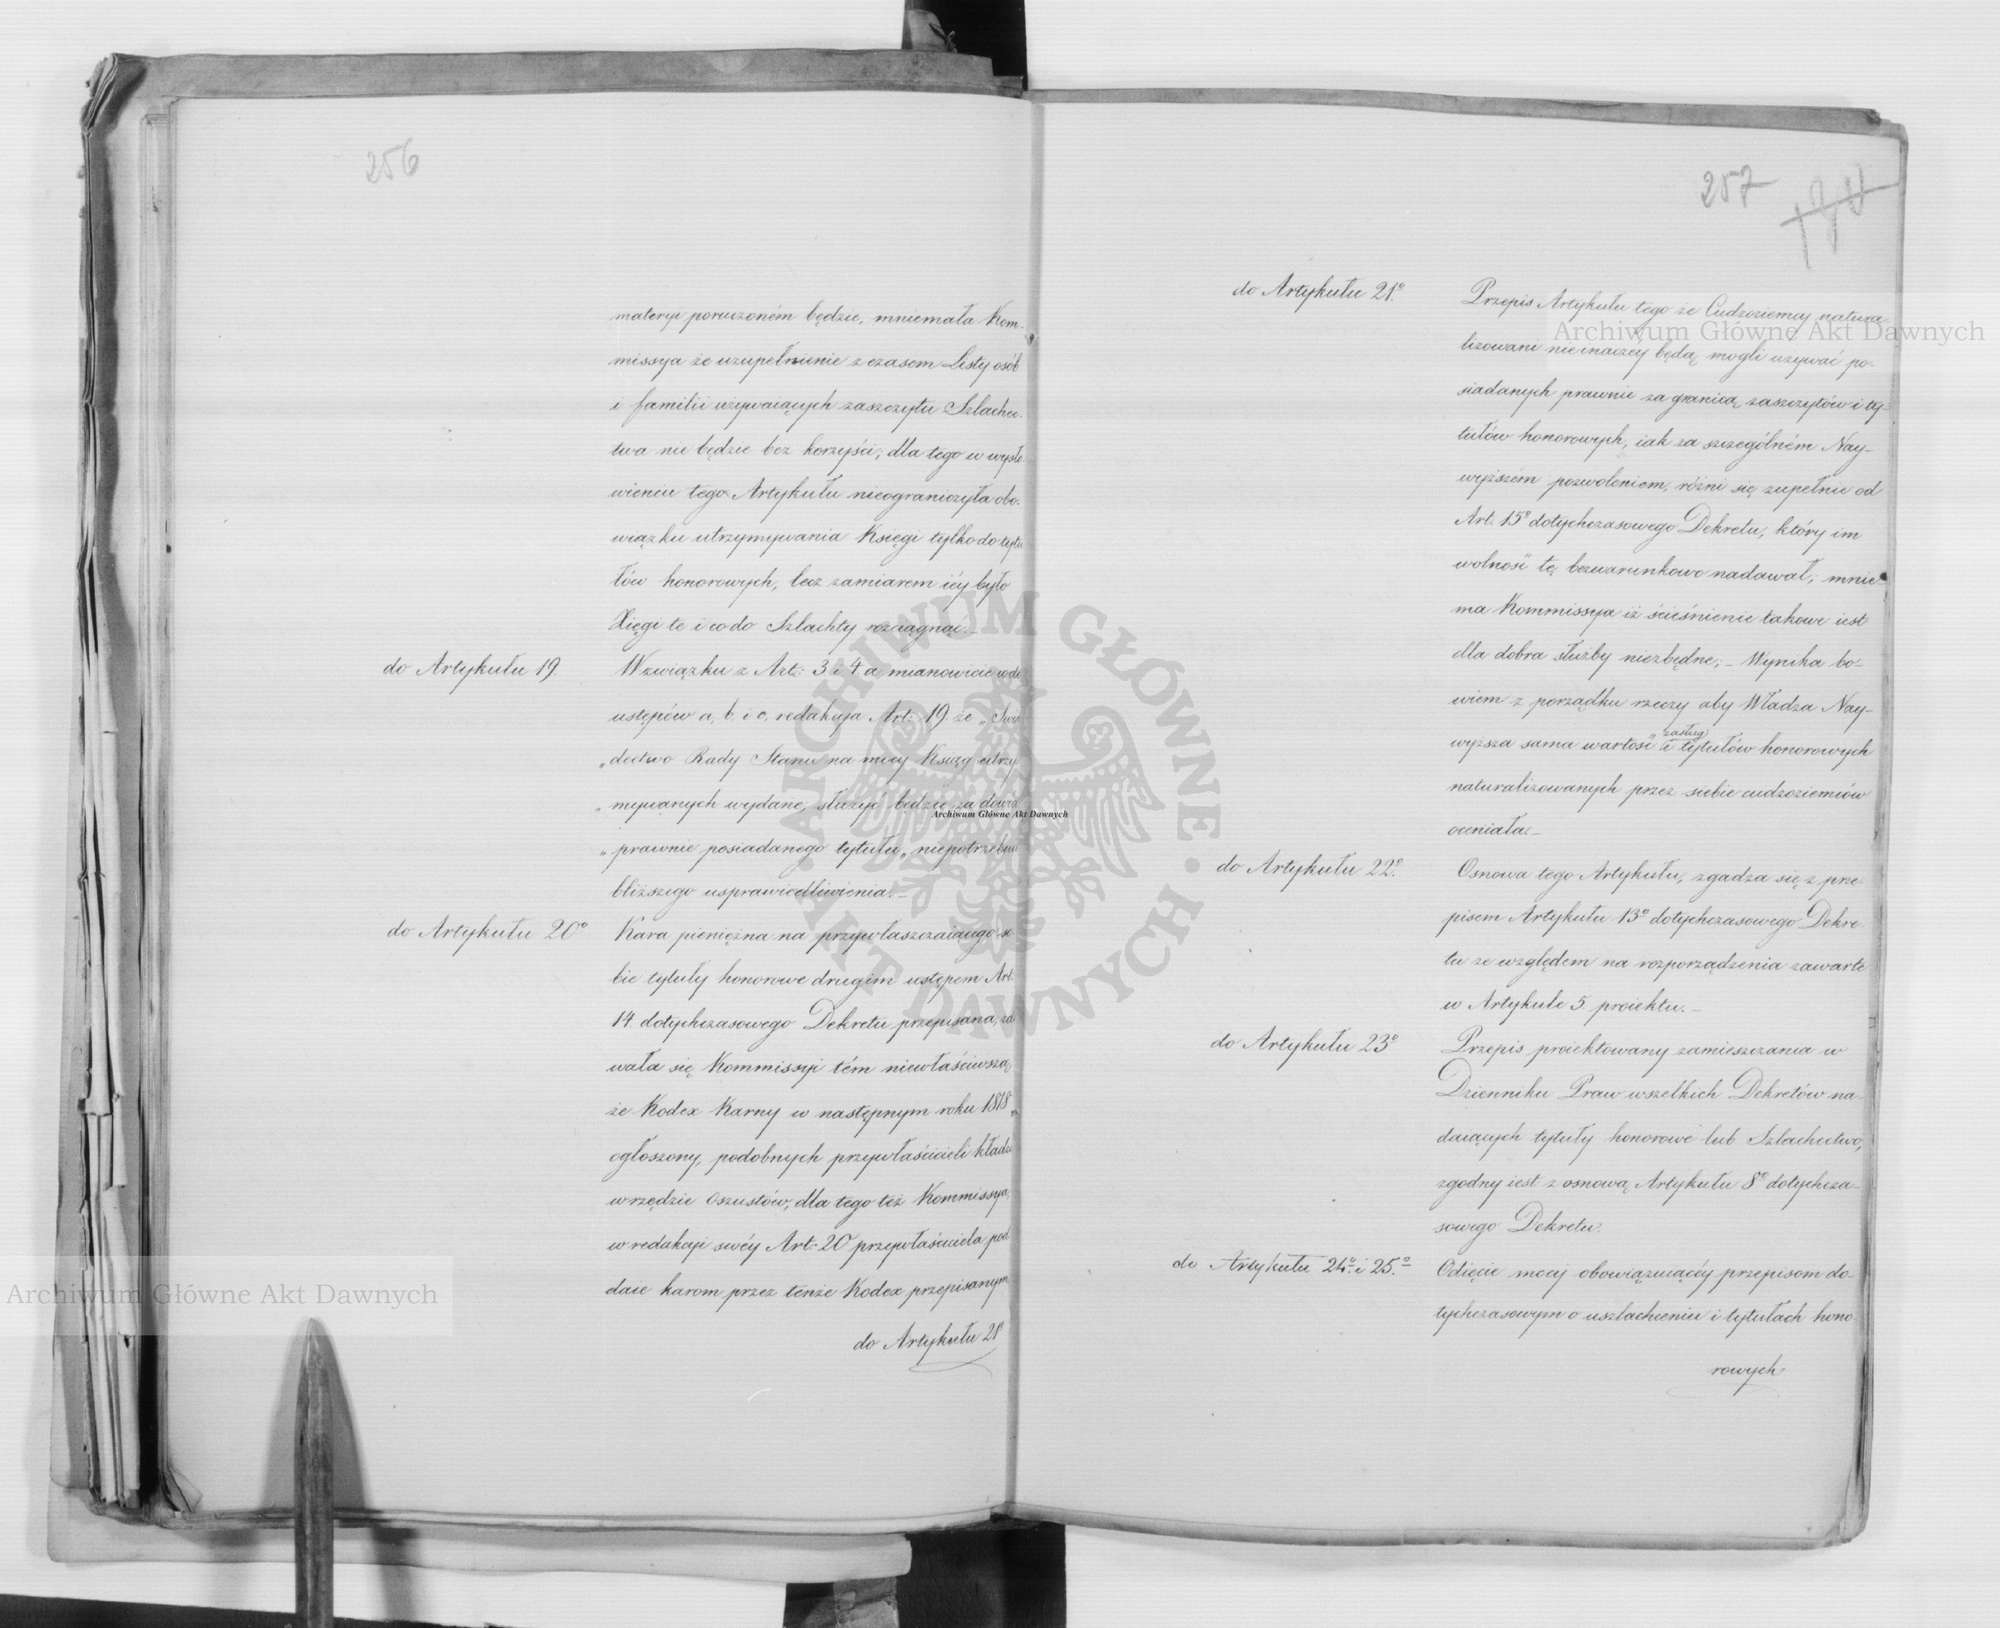 256
materyi poruczoném będzie, mniemała Kom-
missya że uzupełnienie z czasem Listy osób
i familii używaiących zaszczytu Szlachec-
twa nie będzie bez korzyści; dla tego w wysło
wieniu tego Artykułu nieograniczyła obo-
wiązku utrzymywania Księgi tylko do tytu
łów honorowych, lecz zamiarem iéy było
Xięgi te i co do Szlachty rozciągnąć.–
do Artykułu 19.
W związku z Art: 3 i 4. a mianowicie co do
ustępów a, b. i c. redakcya Art: 19 że „Świa
„dectwo Rady Stanu na mocy Ksiąg utrzy
„mywanych wydane, służyć będzie za dowód
„prawnie posiadanego tytułu„ niepotrzebuie
bliższego usprawiedliwienia.–
do Artykułu 20º
Kara pieniężna na przywłaszczaiącego so
bie tytuły honorowe drugim ustępem Art.
14. dotychczasowego Dekretu przepisana, zda
wała się Kommissyi tém niewłaściwszą,
że Kodex Karny w następnym roku 1818
ogłoszony, podobnych przywłaścicieli kładzie
w rzędzie Oszustów, dla tego też Kommissya,
w redakcyi swéy Art: 20 przywłaściciela pod
daie karom przez tenże Kodex przepisanym
do Artykułu 21º
257
do Artykułu 21º
Przepis Artykułu tego że Cudzoziemcy natura
lizowani nieinaczéy będą mogli używać po-
siadanych prawnie za granicą zaszczytów i ty-
tułów honorowych, iak za szczególném Nay-
wyższém pozwoleniem, różni się zupełnie od
Art. 15º dotychczasowego Dekretu, który im
wolność tę bezwarunkowo nadawał; mnie-
ma Kommissya iż ścieśnienie takowe iest
dla dobra służby niezbędne;– Wynika bo-
wiem z porządku rzeczy aby Władza Nay-
zasług
wyższa sama wartość i tytułów honorowych
naturalizowanych przez siebie cudzoziemców
oceniała.–
do Artykułu 22º
Osnowa tego Artykułu, zgadza się z prze
pisem Artykułu 13º dotychczasowego Dekre
tu ze względem na rozporządzenia zawarte
w Artykule 5. proiektu.–
do Artykułu 23º
Przepis proiektowany zamieszczania w
Dzienniku Praw wszelkich Dekretów na-
daiących tytuły honorowe lub Szlachectwo,
zgodny iest z osnową Artykułu 8º dotychcza-
sowego Dekretu.
do Artykułu 24º i 25º
Odięcie mocy obowiązuiącéy przepisom do-
tychczasowym o uszlachceniu i tytułach hono
rowych
Archiwum Główne Akt Dawnych
Archiwum Główne Akt Dawnych
Archiwum Główne Akt Dawnych
ARCHIWUM GŁÓWNE AKT DAWNYCH